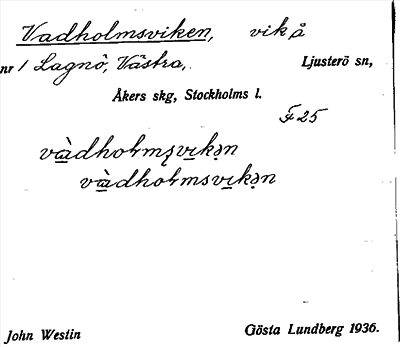 Vadholmsviken, vik å
nr 1 Lagnö, Västra, Ljusterö sn,
Åkers skg, Stockholms l.
F 25
và̱dhoɫmsvi̱kən
và̱dhoɫmsvi̱kən
John Westin Gösta Lundberg 1936.